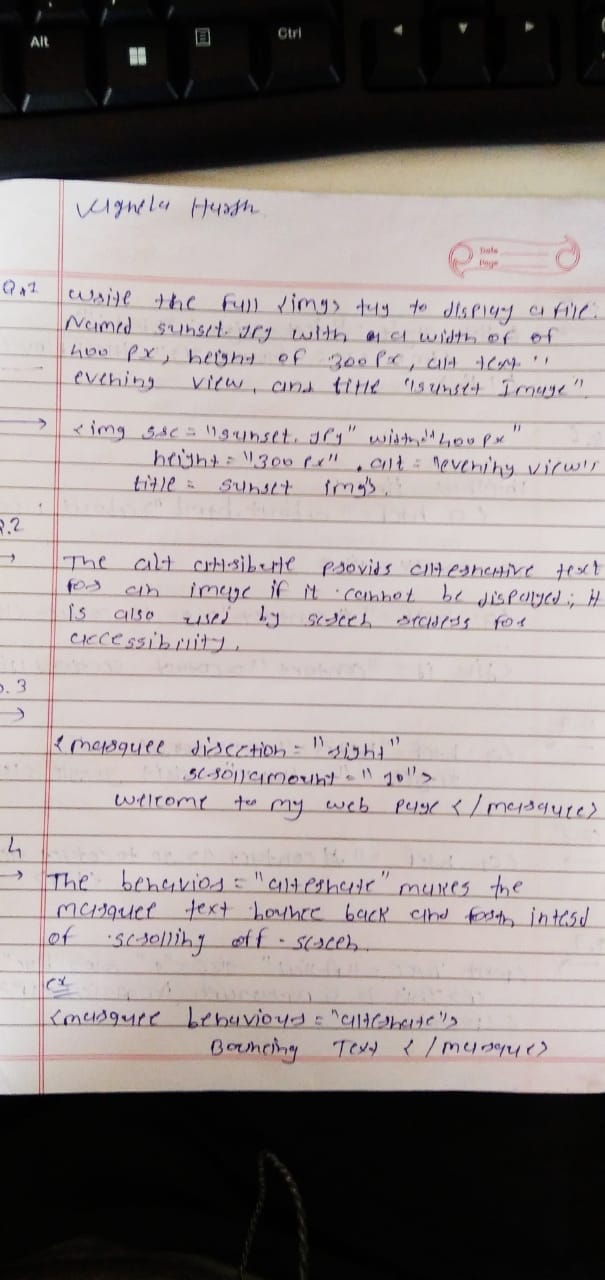 Alt
Ctrl
Vaghela Harsh
Date
Page
Q.1 write the full <img> tag to display a file.
Named sunset.jpg with a a width of of
400 px, height of 300 px, alt text "
evening view, and title "sunset Image".
→ <img src = "sunset.jpg" width="400 px"
height = "300 px" . alt = "evening view"
title = sunset img>.
2.2
→ The alt attribute provids alternative text
for an image if it cannot be displayed; it
is also used by screen readers for
accessibility.
3
→
< marquee direction = "right"
scrollamount = "10">
Welcome to my web page </marquee>
4
→ The behavior = "alternate" makes the
marquee text bounce back and forth intesd
of scrolling off-screen.
ex
<marquee behaviour = "alternate">
Bouncing Text </marque>